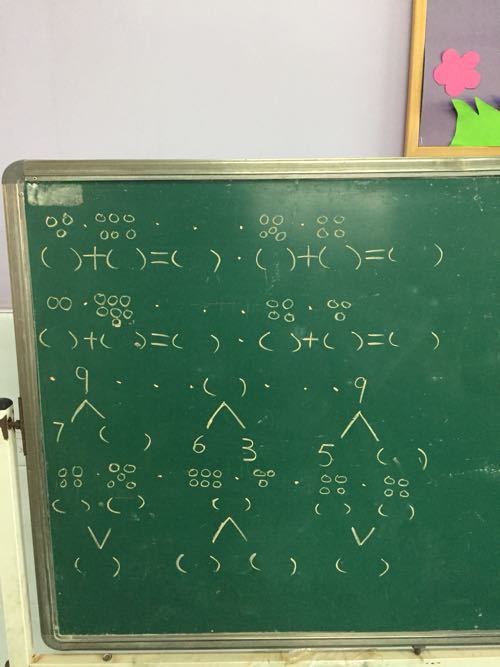 ( )+( )=( ) · ( )+( )=( )
( )+( )=( ) · ( )+( )=( )
· 9 · · · ( ) · · · 9
7 ( ) 6 3 5 ( )
( ) ( ) ( ) ( ) ( )
( ) ( ) ( ) ( )